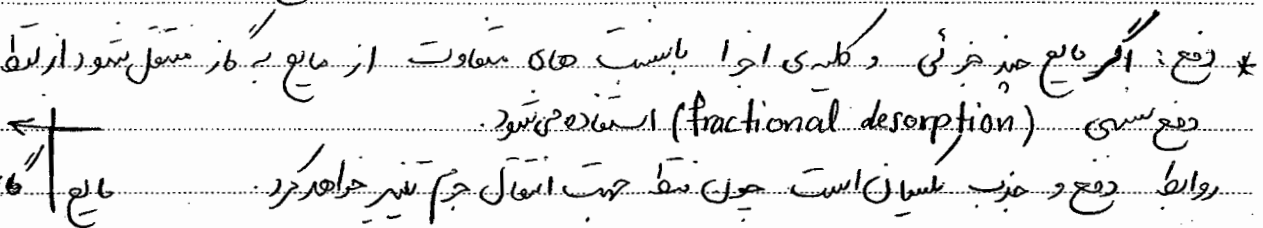 * دفع: اگر مایع چند جزئی و کلیه‌ی اجزا با نسبت های متفاوت از مایع به گاز منتقل شود از لفظ
دفع نسبی (fractional desorption) استفاده می شود.
روابط دفع و جذب یکسان است چون فقط جهت انتقال جرم تغییر خواهد کرد. مایع گاز